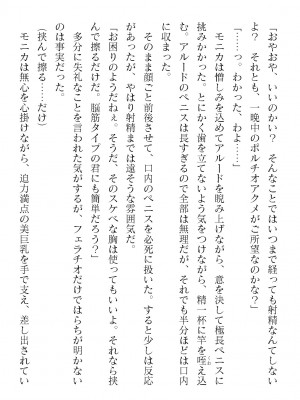 「おやおや、いいのかい？　そんなことではいつまで経っても射精なんてしない
よ？　それとも、一晩中のポルチオアクメがご所望なのかな？」
「……っ。わかった、わよ……」
モニカは憎しみを込めてアルードを睨み上げながら、意を決して極長ペニスに
挑みかかった。とにかく歯を立てないよう気をつけながら、精一杯に竿を咥え込
む。アルードのペニスは長すぎるので全部は無理だが、それでも半分ほどは口内
に収まった。
そのまま顔ごと前後させて、口内のペニスを必死に扱いた。すると少しは反応
があったが、やはり射精までは遠そうな雰囲気だ。
「お困りのようだねぇ。そうだ、そのスケベな胸は使ってもいいよ。それなら挟
んで擦るだけだ、脳筋タイプの君にも簡単だろう？」
多分に失礼なことを言われた気がするが、フェラチオだけではらちが明かない
のは事実だった。
（挟んで擦る……だけ）
モニカは無心を心掛けながら、迫力満点の美巨乳を手で支え、差し出されてい